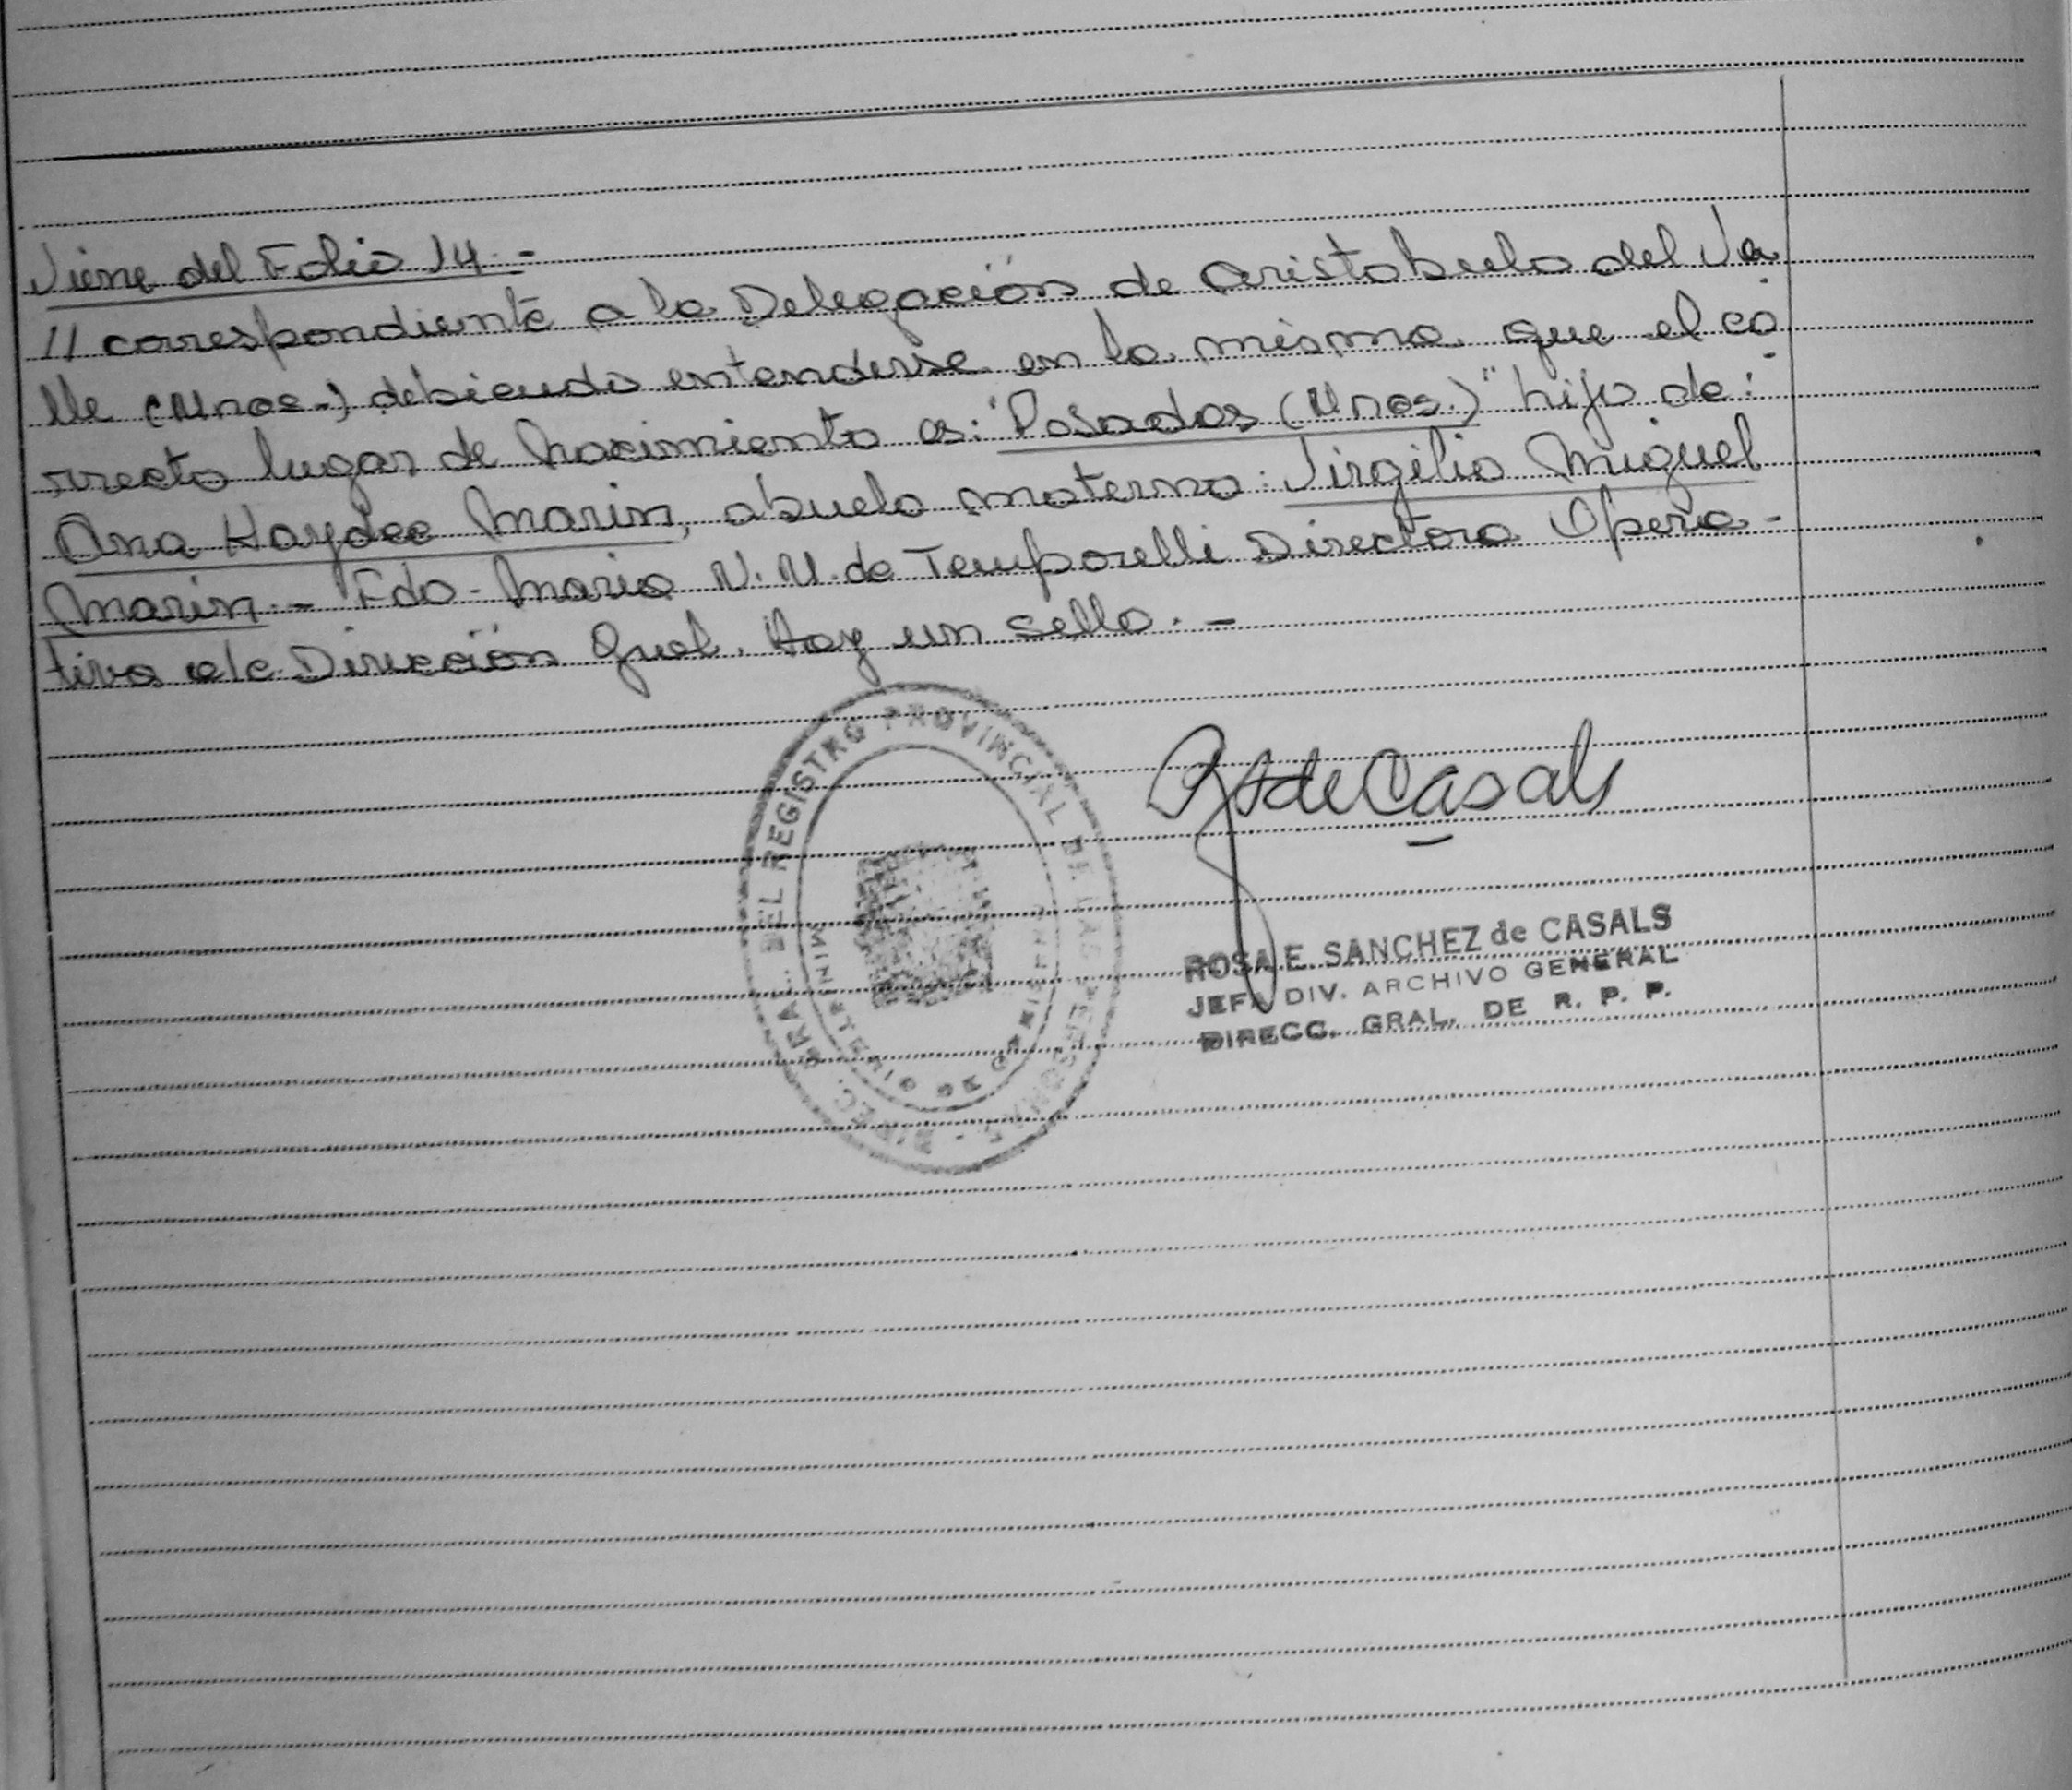 Viene del Folio 14.-
// correspondiente a la Delegación de Aristobulo del Va
lle (Mnes.-) debiendo entenderse en la misma que el co
rrecto lugar de Nacimiento es: "Posadas (Mnes.)" hijo de:
Ana Haydee Marin, abuelo materno: Virgilio Miguel
Marin.- Fdo- Maria N. M. de Temporelli Directora Opera-
tiva a/c Dirección Gral. Hay un sello.-
RS de Casals
DIREC. GRAL. DEL REGISTRO PROVINCIAL DE LAS PERSONAS
MINISTERIO DE G
ROSA E. SANCHEZ de CASALS
JEFA DIV. ARCHIVO GENERAL
DIRECC. GRAL. DE R. P. P.